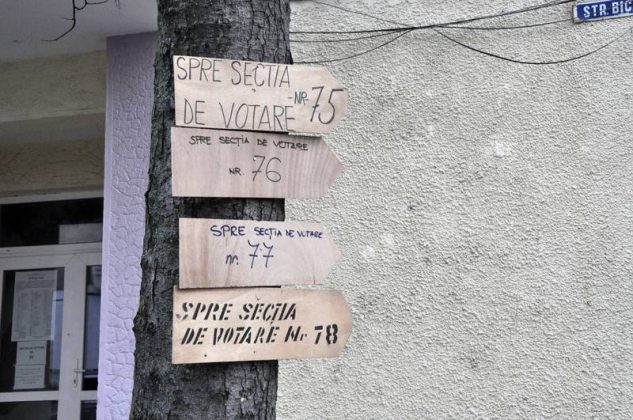 STR. BIC
SPRE SECȚIA
DE VOTARE NR. 75
SPRE SECȚIA DE VOTARE
NR. 76
SPRE SECȚIA DE VOTARE
nr. 77
SPRE SECȚIA
DE VOTARE Nr 78